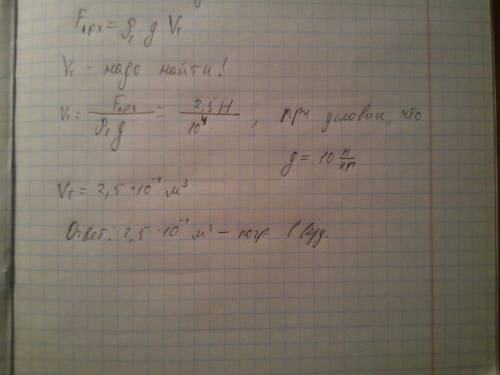 Fарх = ρ₁ g Vт
Vт - надо найти!
Vт = Fарх / ρ₁ g = 2,5 Н / 10⁴ , при условии, что
g = 10 Н/кг
Vт = 2,5 · 10⁻⁴ м³
Ответ: 2,5 · 10⁻⁴ м³ - погр. в воду.